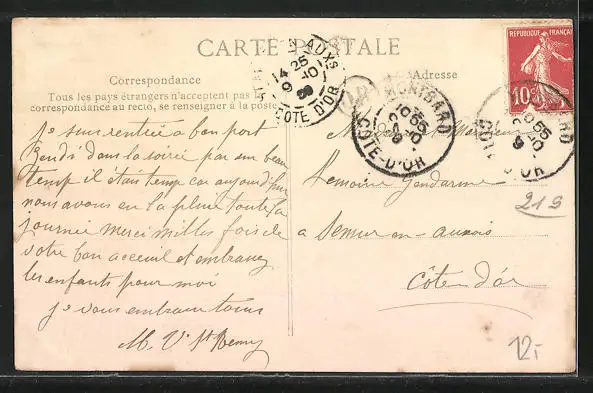 CARTE POSTALE
Correspondance
Tous les pays étrangers n'acceptent pas la
correspondance au recto, se renseigner à la poste
Adresse
REPUBLIQUE FRANÇAISE
10c
AUXS
14 25
9 -10
09
COTE D'OR
MONTBARD
10 55
9 -10
09
COTE-D'OR
10 55
9 -10
D'OR
Je suis rentrée a bon port
Jeudi dans la soirée par un beau
temp il était temp car aujourd'hui
nous avons eu la pluie toute la
journée merci milles fois de
votre bon acceuil et embrassez
les enfants pour moi
je vous embrasse tous
M. V. St Remy
Madame Monsieur
Lemoine Gendarme
a Semur en-auxois
Côte d'or
219
12,-